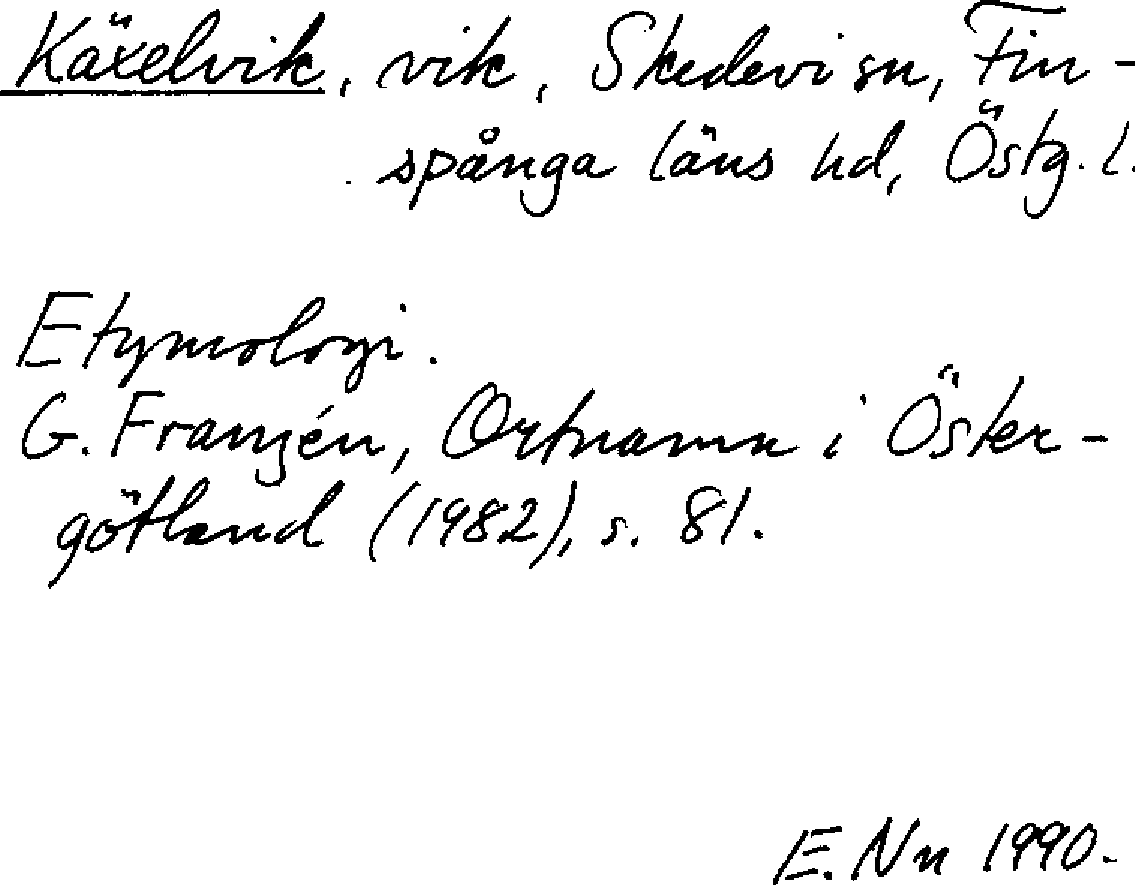 Käxelvik, vik, Skedevi sn, Fin-
spånga läns hd, Östg. l.
Etymologi.
G. Franzén, Ortnamn i Öster-
götland (1982), s. 81.
E. Nn 1990.